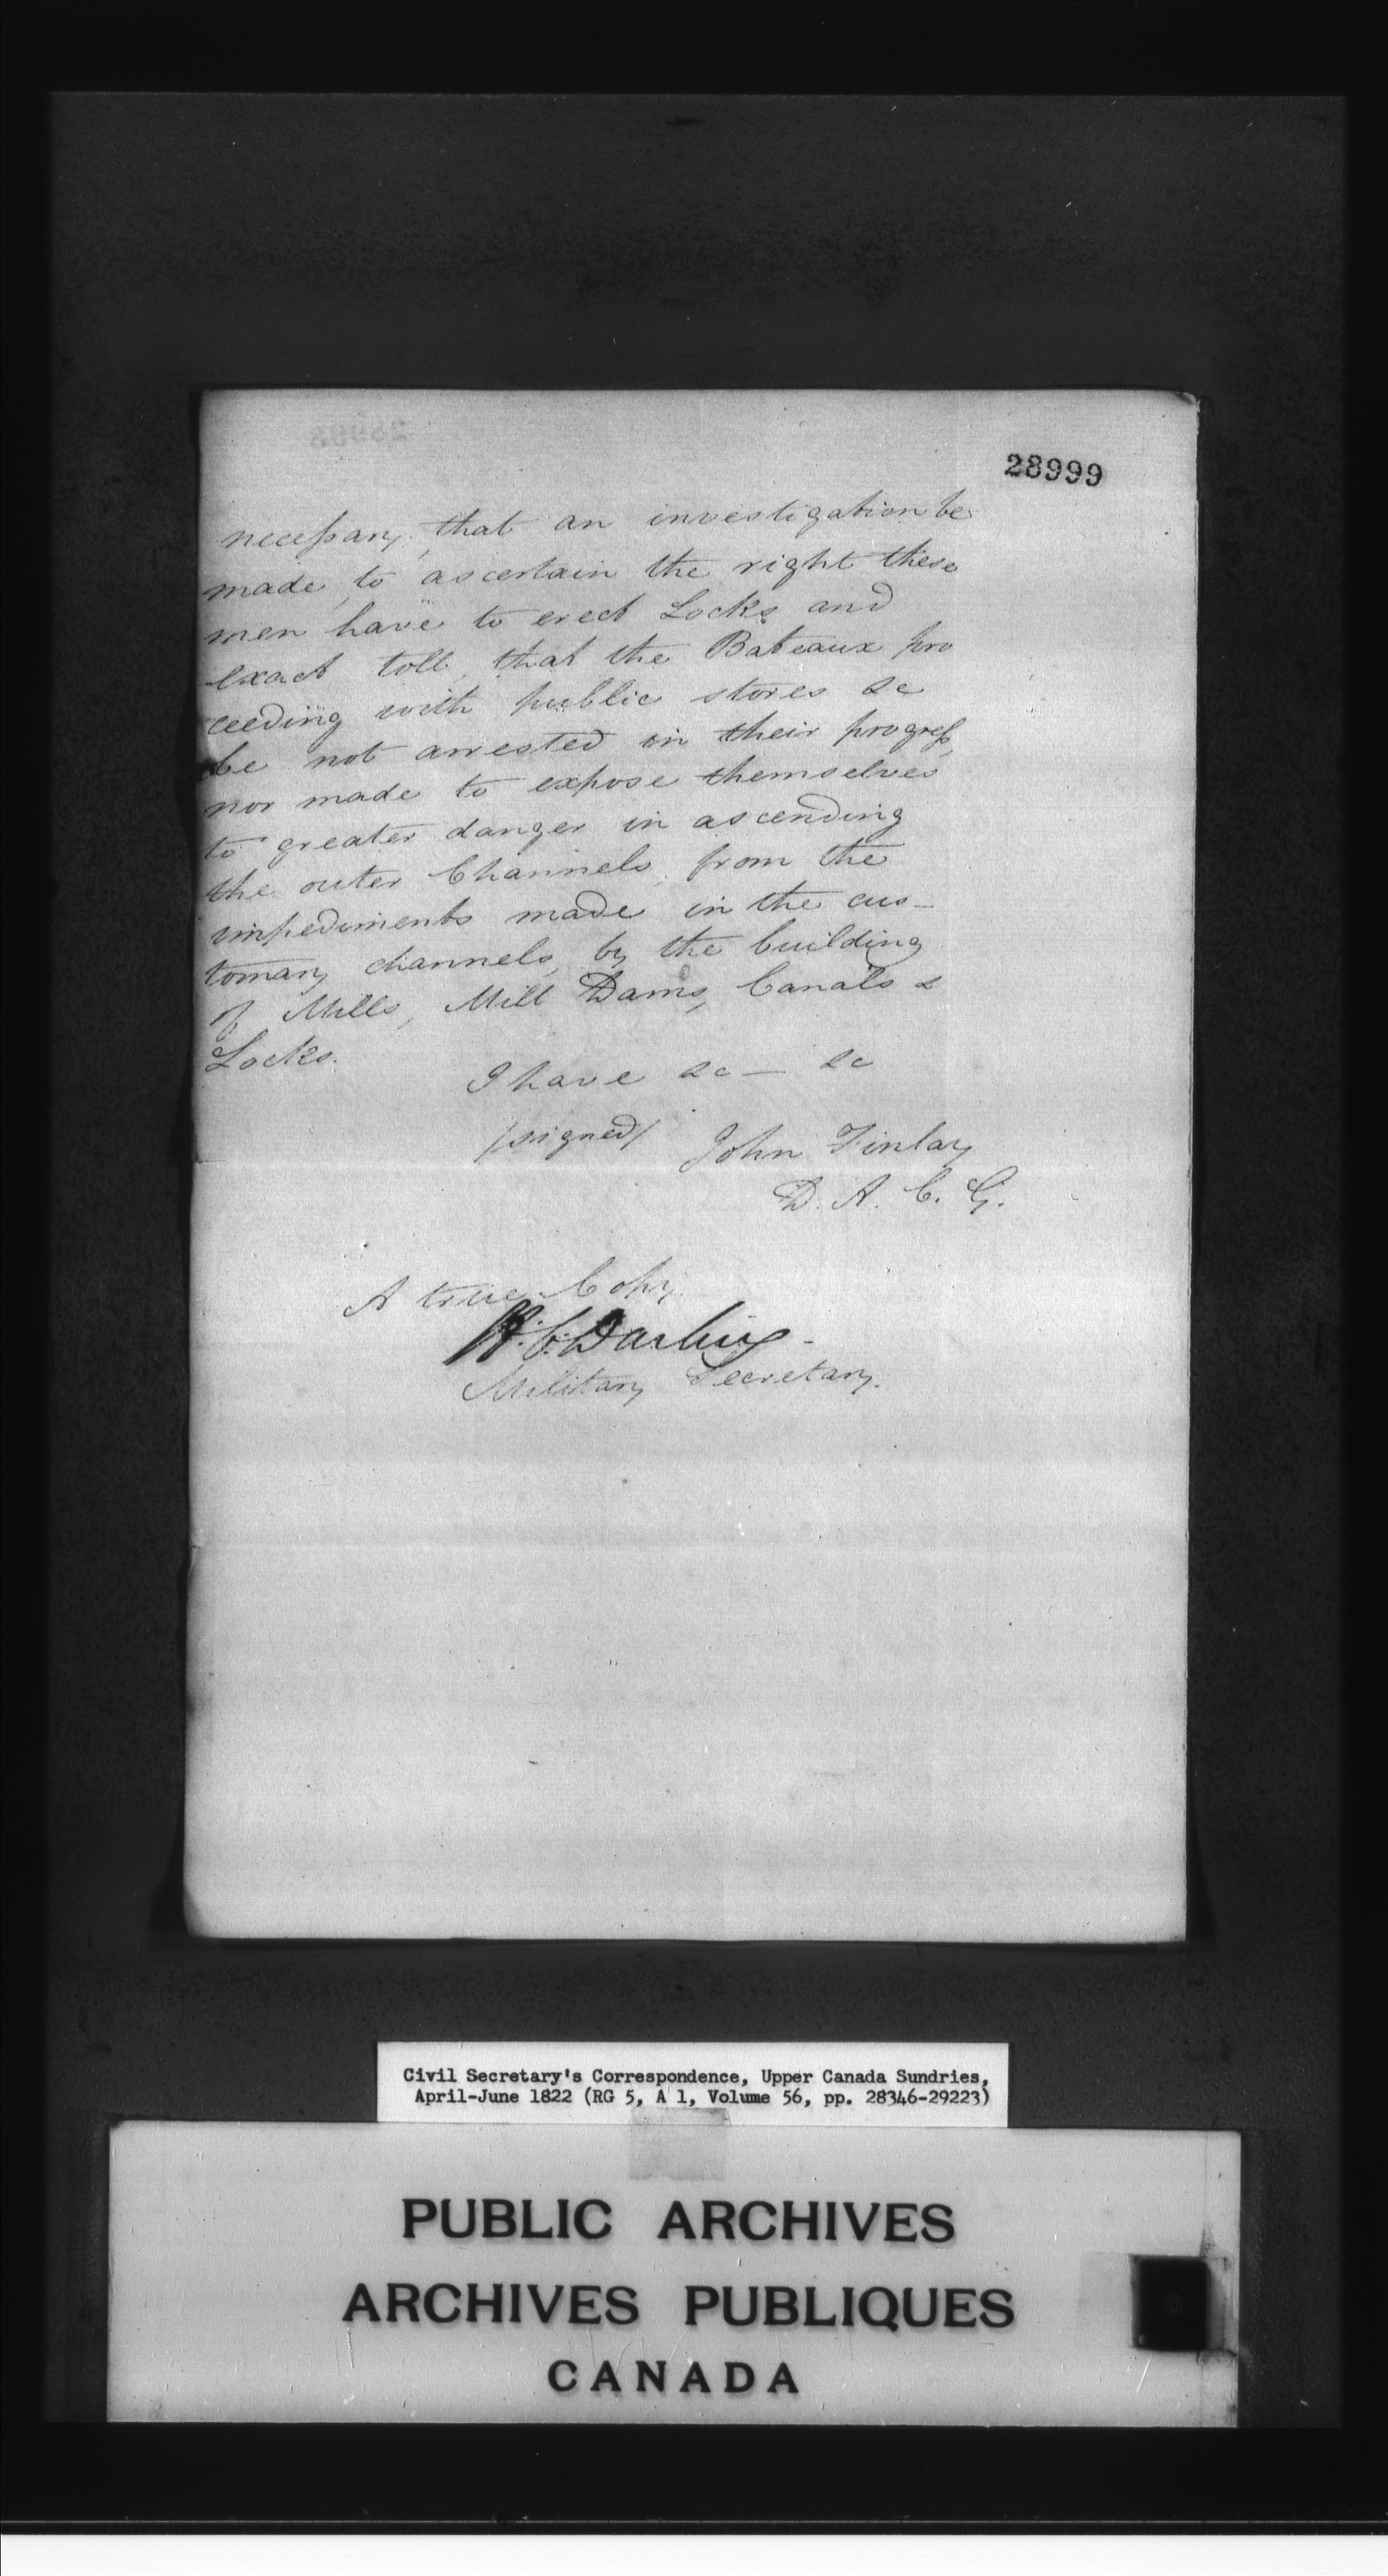 28999
necessary, that an investigation be
made, to ascertain the right these
men have to erect Locks and
exact toll, that the Bateaux pro
ceeding with public stores &c
be not arrested in their progress,
nor made to expose themselves
to greater danger in ascending
the outer Channels, from the
impediments made in the cus-
tomary channels, by the building
of Mills, Mill Dams, Canals &
Locks.
I have &c — &c
/signed/ John Finlay
D. A. C. G.
A true Copy
H. C. Darling -
Military Secretary.
Civil Secretary's Correspondence, Upper Canada Sundries,
April-June 1822 (RG 5, A 1, Volume 56, pp. 28346-29223)
PUBLIC ARCHIVES
ARCHIVES PUBLIQUES
CANADA